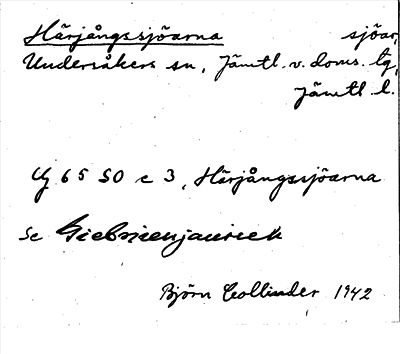 Härjångssjöarna sjöar,
Undersåkers sn, Jämtl. v. doms. tg,
Jämtl. l.
65 SO c 3, Härjångssjöarna
Se
Björn Collinder 1942